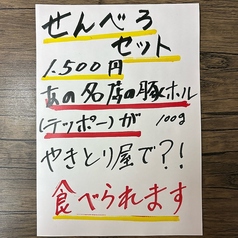 せんべろ
セット
1.500円
あの名店の豚ホル
(テッポー)が 100g
やきとり屋で?!
食べられます